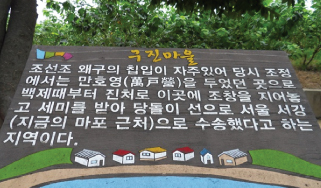 구진마을
조선조 왜구의 침입이 자주있어 당시 조정
에서는 만호영(萬戶營)을 두었던 곳으로
백제때부터 진처로 이곳에 조창을 지어놓
고 세미를 받아 당돌이 선으로 서울 서강
(지금의 마포 근처)으로 수송했다고 하는
지역이다.